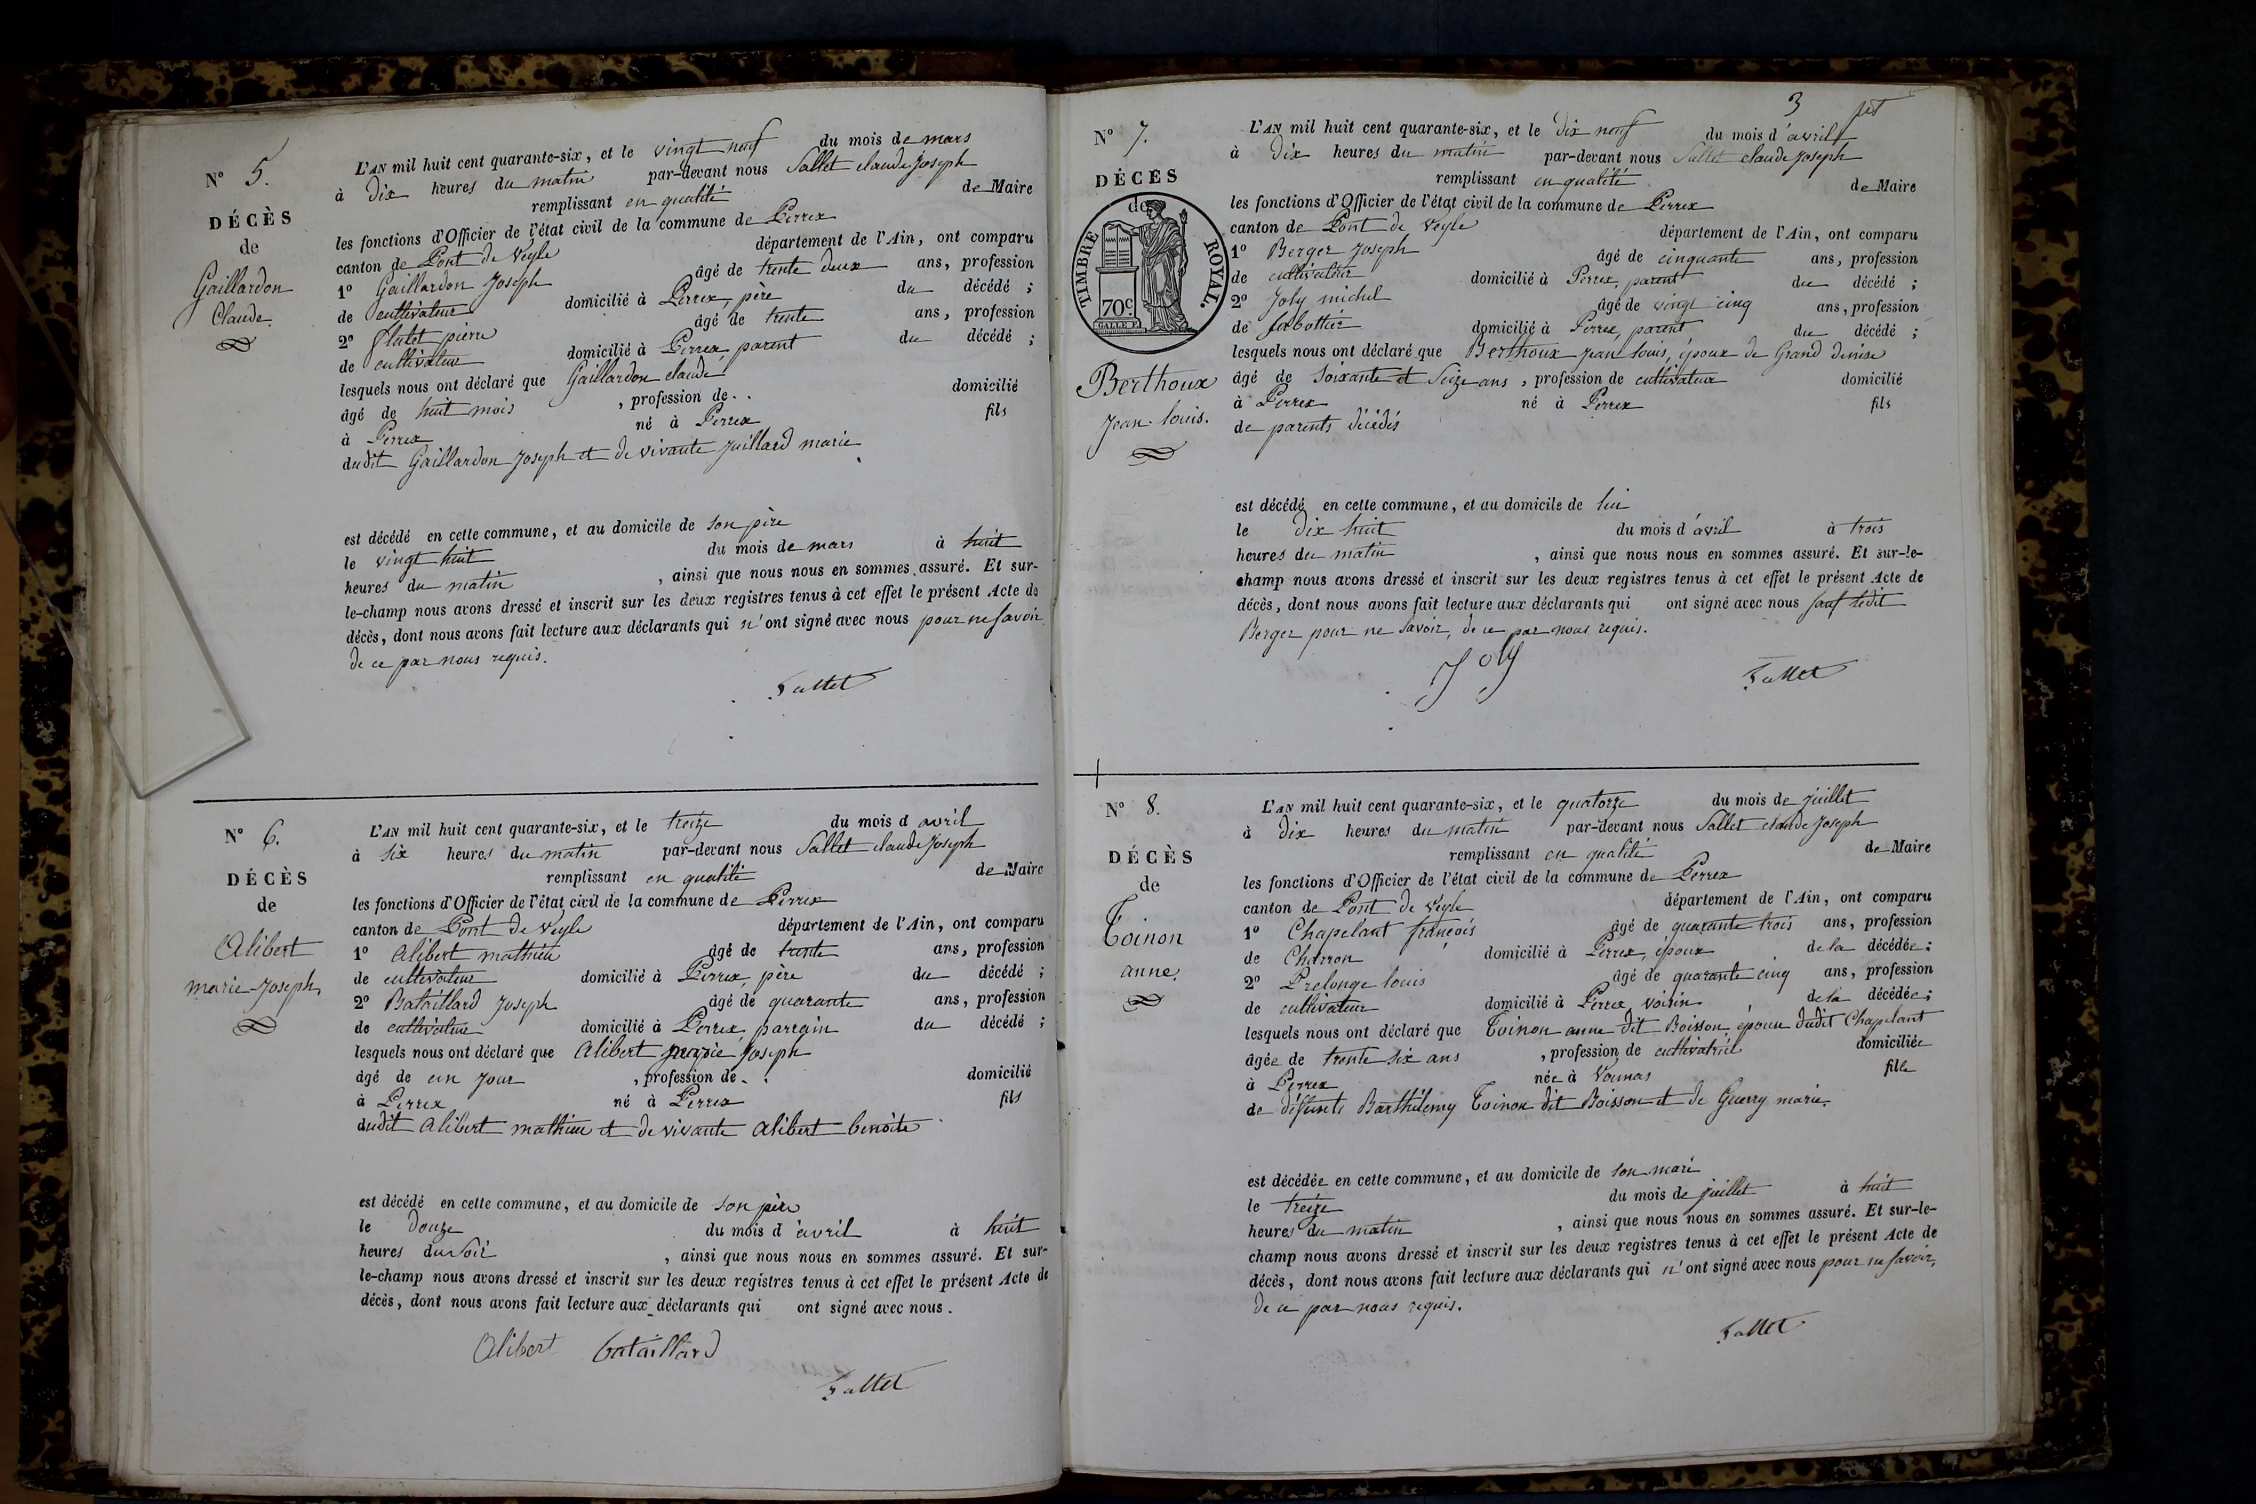 N° 5.
DÉCÈS
de
Gaillardon
Claude.
L'AN mil huit cent quarante-six, et le vingt neuf du mois de mars
à Dix heures du matin par-devant nous Sallet claude Joseph
remplissant en qualité de Maire
les fonctions d'Officier de l'état civil de la commune de Perrex
canton de Pont de Veyle département de l'Ain, ont comparu
1° Gaillardon Joseph âgé de trente deux ans, profession
de cultivateur domicilié à Perrex, père du décédé ;
2° Platet pierre âgé de trente ans, profession
de cultivateur domicilié à Perrex, parent du décédé ;
lesquels nous ont déclaré que Gaillardon claude
âgé de huit mois , profession de . . domicilié
à Perrex né à Perrex fils
dudit Gaillardon Joseph et de vivante Juillard marie
est décédé en cette commune, et au domicile de son père
le vingt huit du mois de mars à huit
heures du matin , ainsi que nous nous en sommes assuré. Et sur-
le-champ nous avons dressé et inscrit sur les deux registres tenus à cet effet le présent Acte de
décès, dont nous avons fait lecture aux déclarants qui n'ont signé avec nous pour ne savoir
de ce par nous requis.
Sallet
N° 6.
DÉCÈS
de
Alibert
marie-Joseph,
L'AN mil huit cent quarante-six, et le treize du mois d avril
à six heures du matin par-devant nous Sallet claude Joseph
remplissant en qualité de Maire
les fonctions d'Officier de l'état civil de la commune de Perrex
canton de Pont de Veyle département de l'Ain, ont comparu
1° Alibert mathieu âgé de trente ans, profession
de cultivateur domicilié à Perrex, père du décédé ;
2° Bataillard Joseph âgé de quarante ans, profession
de cultivateur domicilié à Perrex, parrain du décédé ;
lesquels nous ont déclaré que Alibert marie Joseph
âgé de un jour , profession de . . domicilié
à Perrex né à Perrex fils
dudit Alibert mathieu et de vivante Alibert benoite
est décédé en cette commune, et au domicile de son père
le Douze du mois d'avril à huit
heures du soir , ainsi que nous nous en sommes assuré. Et sur-
le-champ nous avons dressé et inscrit sur les deux registres tenus à cet effet le présent Acte de
décès, dont nous avons fait lecture aux déclarants qui ont signé avec nous.
Alibert bataillard
Sallet
3
N° 7.
DÉCÈS
de
TIMBRE ROYAL.
70c
Berthoux
Jean louis.
L'AN mil huit cent quarante-six, et le dix neuf du mois d'avril
à Dix heures du matin par-devant nous Sallet claude Joseph
remplissant en qualité de Maire
les fonctions d'Officier de l'état civil de la commune de Perrex
canton de Pont de Veyle département de l'Ain, ont comparu
1° Berger Joseph âgé de cinquante ans, profession
de cultivateur domicilié à Perrex, parent du décédé ;
2° Joly michel âgé de vingt cinq ans, profession
de sabottier domicilié à Perrex, parent du décédé ;
lesquels nous ont déclaré que Berthoux Jean louis, époux de Grand denise
âgé de soixante et seize ans , profession de cultivateur domicilié
à Perrex né à Perrex fils
de parents décédés
est décédé en cette commune, et au domicile de lui
le dix huit du mois d'avril à trois
heures du matin , ainsi que nous nous en sommes assuré. Et sur-le-
champ nous avons dressé et inscrit sur les deux registres tenus à cet effet le présent Acte de
décès, dont nous avons fait lecture aux déclarants qui ont signé avec nous sauf ledit
Berger pour ne savoir, de ce par nous requis.
Joly Sallet
N° 8.
DÉCÈS
de
Toinon
anne
L'AN mil huit cent quarante-six, et le quatorze du mois de juillet
à Dix heures du matin par-devant nous Sallet claude Joseph
remplissant en qualité de Maire
les fonctions d'Officier de l'état civil de la commune de Perrex
canton de Pont de Veyle département de l'Ain, ont comparu
1° Chapelant françois âgé de quarante trois ans, profession
de Charron domicilié à Perrex, époux de la décédée ;
2° Prelonge louis âgé de quarante cinq ans, profession
de cultivateur domicilié à Perrex, voisin de la décédée ;
lesquels nous ont déclaré que Toinon anne dit Boisson, épouse dudit Chapelant
âgée de trente six ans , profession de cultivatrice domiciliée
à Perrex née à Vonnas fille
de défunts Barthélemy Toinon dit Boisson et de Guerry marie.
est décédée en cette commune, et au domicile de son mari
le treize du mois de juillet à huit
heures du matin , ainsi que nous nous en sommes assuré. Et sur-le-
champ nous avons dressé et inscrit sur les deux registres tenus à cet effet le présent Acte de
décès, dont nous avons fait lecture aux déclarants qui n'ont signé avec nous pour ne savoir,
de ce par nous requis.
Sallet